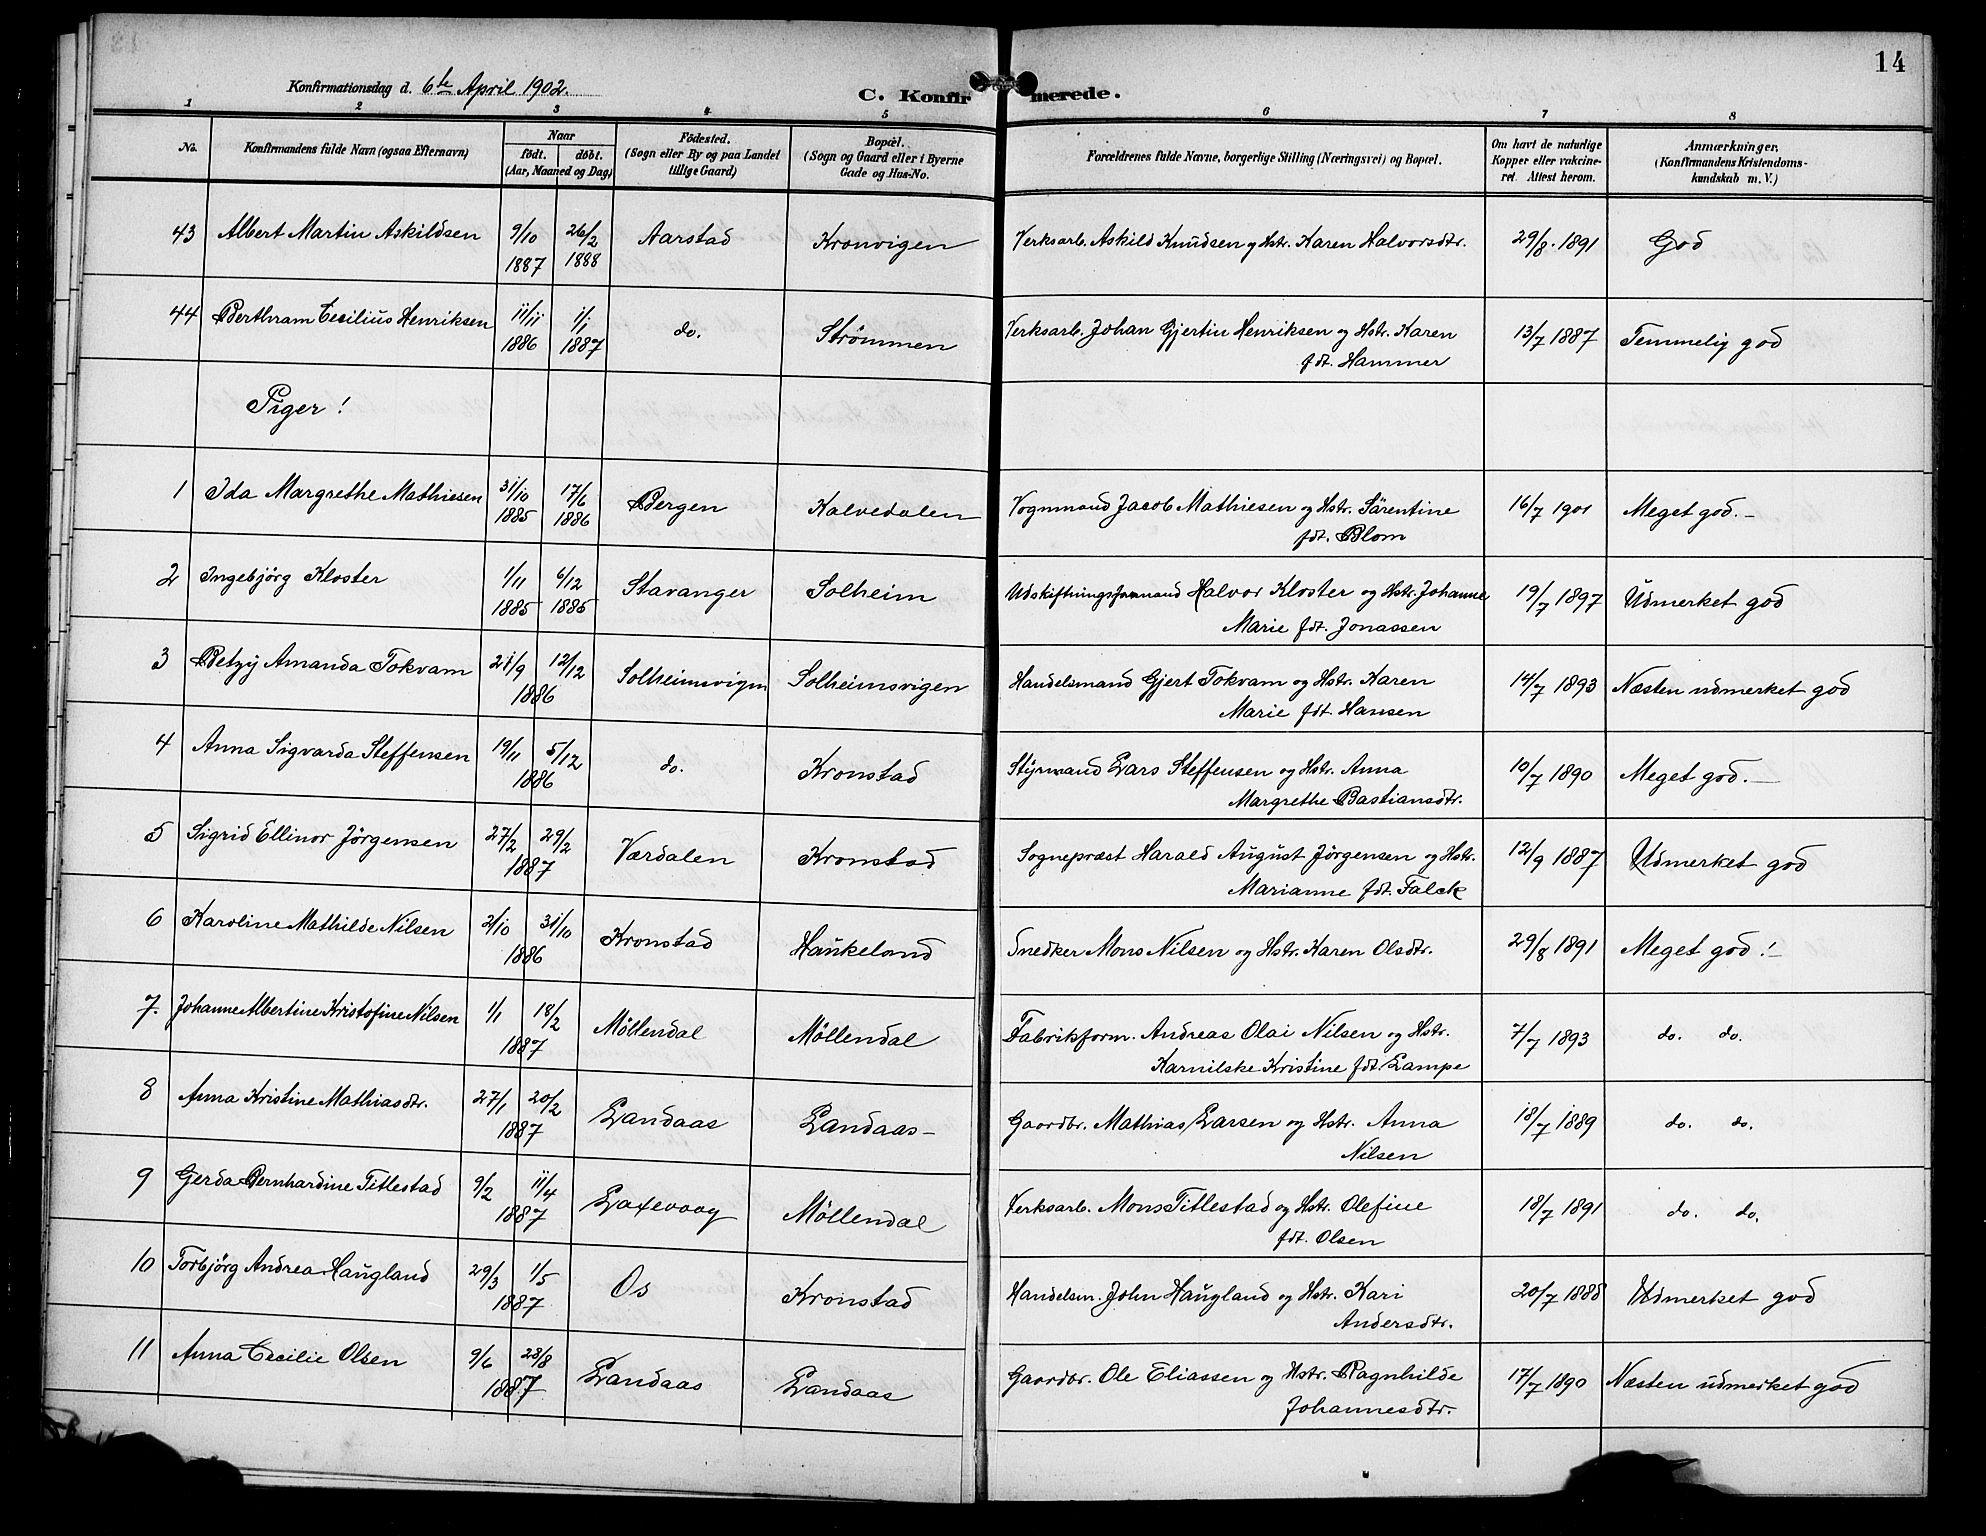 14
Konfirmationsdag d. 6te April 1902.
C. Konfirmerede.
1 2 3 4 5 6 7 8
No. | Konfirmandens fulde Navn (ogsaa Efternavn) | Naar født. døbt. (Aar, Maaned og Dag) | Fødested. (Sogn eller By og paa Landet tillige Gaard) | Bopæl. (Sogn og Gaard eller i Byerne Gade og Hus-No. | Forældrenes fulde Navne, borgerlige Stilling (Næringsvei) og Bopæl. | Om havt de naturlige Kopper eller vakcineret. Attest herom. | Anmærkninger. (Konfirmandens Kristendomskundskab m. V.)
43 Albert Martin Askildsen 9/10 1887 26/2 1888 Aarstad Kronvigen Verksarb. Askild Knudsen og Hstr. Karen Halvorsdtr. 29/8. 1891 God
44 Berthram Cecilius Henriksen 11/11 1886 1/1 1887 do. Strömmen Verksarb. Johan Gjertin Henriksen og Hstr. Karen 13/7 1887 Temmelig god
fdt. Hammer
Piger!
1 Ida Margrethe Mathiesen 31/10 1885 17/6 1886 Bergen Kalvedalen Vognmand Jacob Mathiesen og Hstr. Särentine 16/7 1901 Meget god.-
fdt. Blom
2 Ingebjörg Kloster 1/11 1885 6/12 1885 Stavanger Solheim Udskiftningsformand Halvor Kloster og Hstr. Johanne 19/7 1897 Udmerket god
Marie fdt. Jonassen
3 Betzy Amanda Tokvam 21/9 12/12 1886 Solheimsvigen Solheimsvigen Handelsmand Gjert Tokvam og Hstr. Karen 14/7 1893 Næsten udmerket god
Marie fdt. Hansen
4 Anna Sigvarda Steffensen 19/11 5/12 1886 do. Kronstad Styrmand Lars Steffensen og Hstr. Anna 10/7 1890 Meget god.-
Margrethe Bastiansdtr.
5 Sigrid Ellinor Jörgensen 27/2 29/2 1887 Værdalen Kronstad Sognepræst Harald August Jörgensen og Hstr. 12/9 1887 Udmerket god
Marianne fdt. Falck
6 Karoline Mathilde Nilsen 2/10 31/10 1886 Kronstad Haukeland Snedker Mons Nilsen og Hstr. Karen Olsdtr. 29/8 1891 Meget god!-
7. Johanne Albertine Kristofine Nilsen 1/1 18/2 1887 Möllendal Möllendal Fabrikform. Andreas Olai Nilsen og Hstr. 7/7 1893 do. do.
Karnilske Kristine fdt. Lampe
8 Anna Kristine Mathiasdtr. 27/1 20/2 1887 Landaas Landaas- Gaardbr. Mathias Larsen og Hstr. Anna 18/7 1889 do. do.
Nilsen
9 Gerda Bernhardine Titlestad 9/2 11/4 1887 Laxevaag Möllendal Verksarb. Mons Titlestad og Hstr. Olefine 18/7 1891 do. do.
fdt. Olsen
10 Torbjörg Andrea Haugland 29/3 1/5 1887 Os Kronstad Handelsm. John Haugland og Hstr. Kari 20/7 1888 Udmerket god
Andersdtr.
11 Anna Cecilie Olsen 9/6 28/8 1887 Landaas Landaas Gaardbr. Ole Eliassen og Hstr. Ragnhilde 17/7 1890 Næsten udmerket god
Johannesdtr.